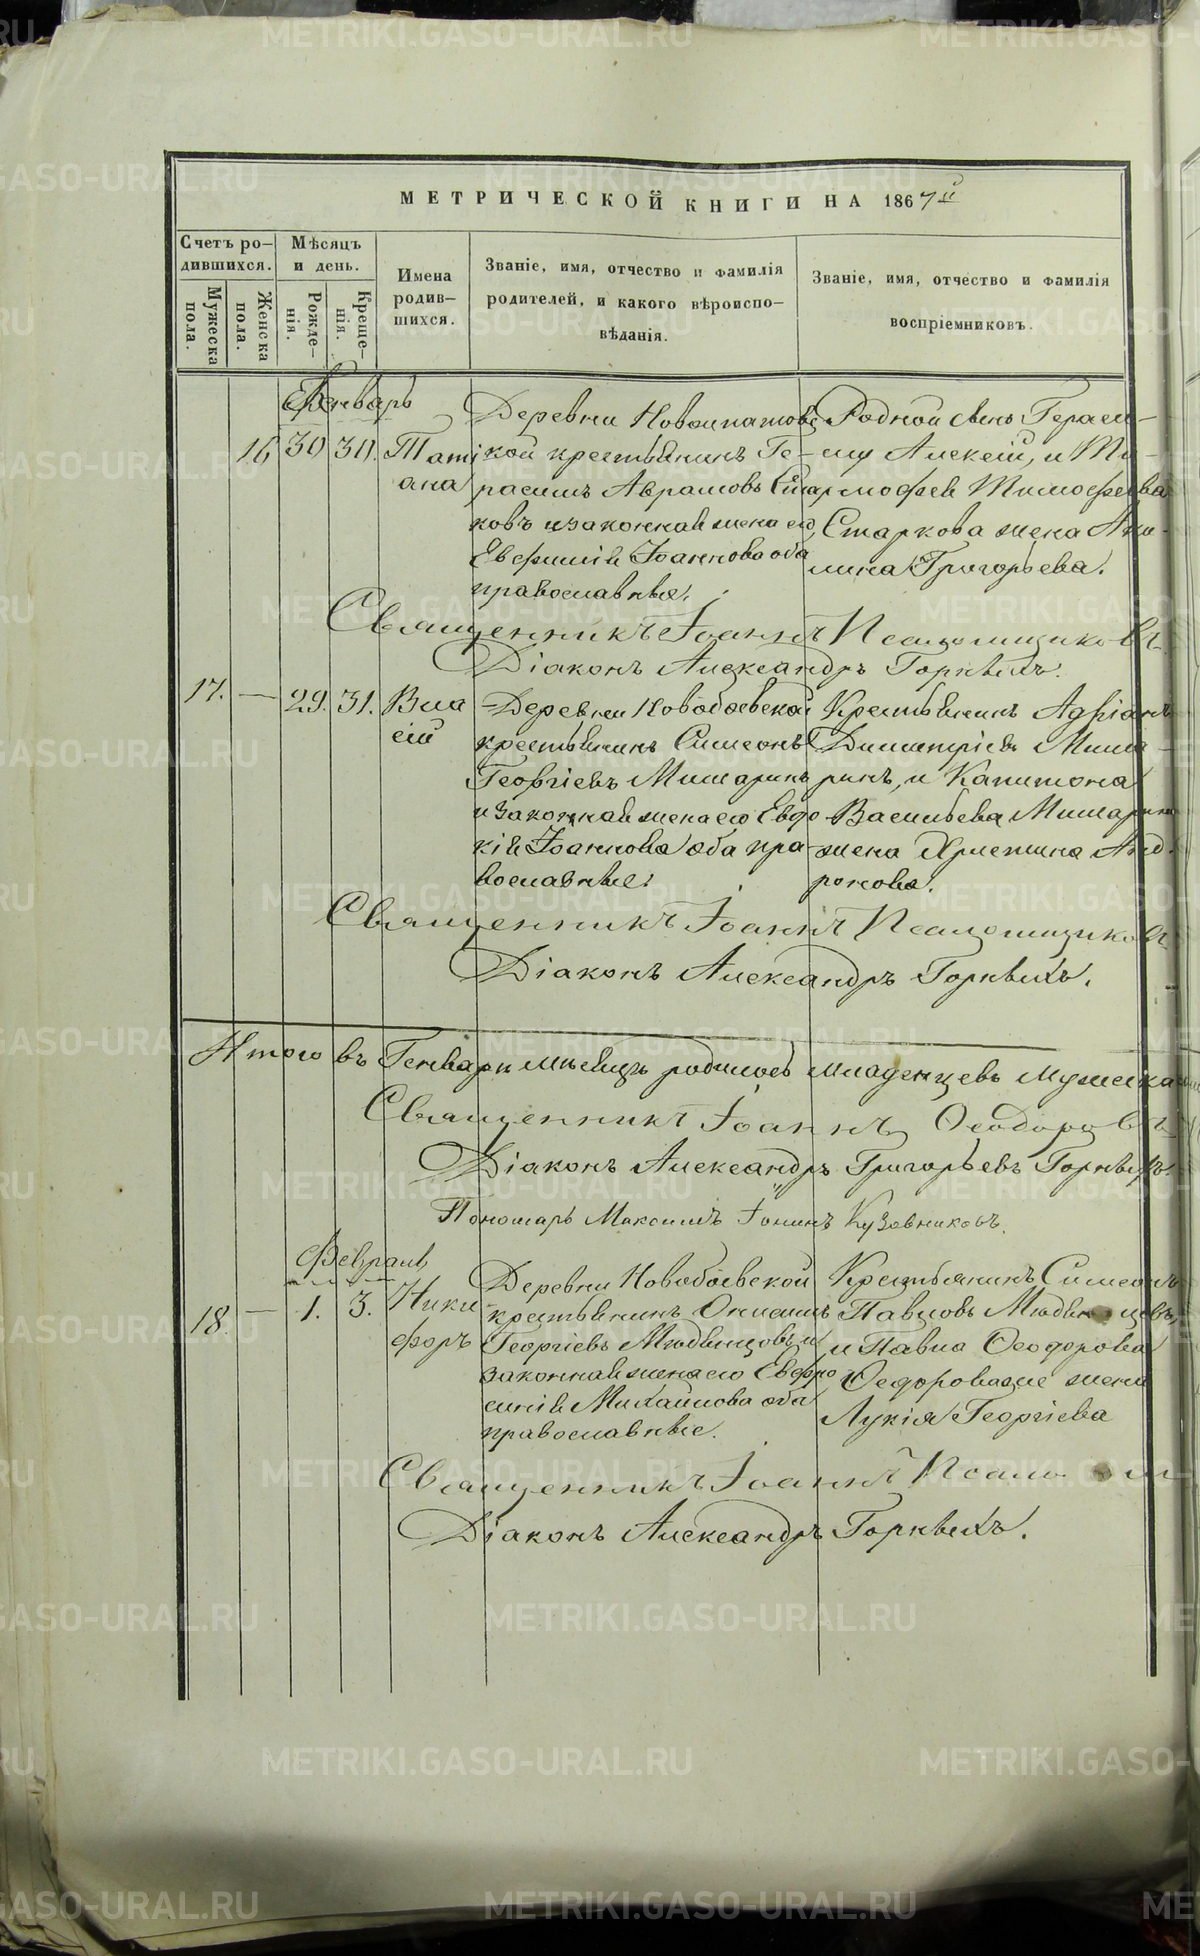 МЕТРИЧЕСКОЙ КНИГИ НА 1867й
Счетъ ро-
дившихся.
Мужеска
пола.
Женска
пола.
Мѣсяцъ
и день.
Рожде-
нія.
Креще-
нія.
Имена
родив-
шихся.
Званіе, имя, отчество и фамилія
родителей, и какого вѣроиспо-
вѣданія.
Званіе, имя, отчество и фамилія
воспріемниковъ.
Генварь
16 30 30. Тати
ана
Деревни Новоипатовс
кой крестьянинъ Ге-
расимъ Аврамовъ Стар
ковъ и законная жена его
Евфимія Іоаннова оба
православные.
Родной сынъ Гераси-
ма Алексій, и Ти-
мофея Тимофеева
Старкова жена Аку-
лина Григорьева.
Священникъ Іоаннъ Псаломщиковъ
Діаконъ Александръ Горныхъ.
17. — 29. 31. Вла
сій
Деревни Новобоевской
крестьянинъ Симеонъ
Георгіевъ Мишаринъ
и законная жена его Евдо
кія Іоаннова оба пра-
вославные.
Крестьянинъ Адріанъ
Димитріевъ Миша-
ринъ, и Капитона
Васильева Мишарина
жена Христина Анд-
ронова.
Священникъ Іоаннъ Псаломщиковъ
Діаконъ Александръ Горныхъ.
Итого въ Генваре месяцъ родилось младенцевъ мужеска
Священникъ Іоаннъ Ѳеодоровъ
Діаконъ Александръ Григорьевъ Горныхъ.
Пономарь Максимъ Іонинъ Кузовниковъ.
Февраль
18. — 1. 3. Ники
форъ
Деревни Новобоевской
крестьянинъ Онисимъ
Георгіевъ Мюдвинцовъ и
законная жена его Евфро
синія Михайлова оба
православные.
Крестьянинъ Симеонъ
Павловъ
и Павла Ѳеодорова
жена
Лукія Георгіева
Священникъ Іоаннъ
Діаконъ Александръ Горныхъ.